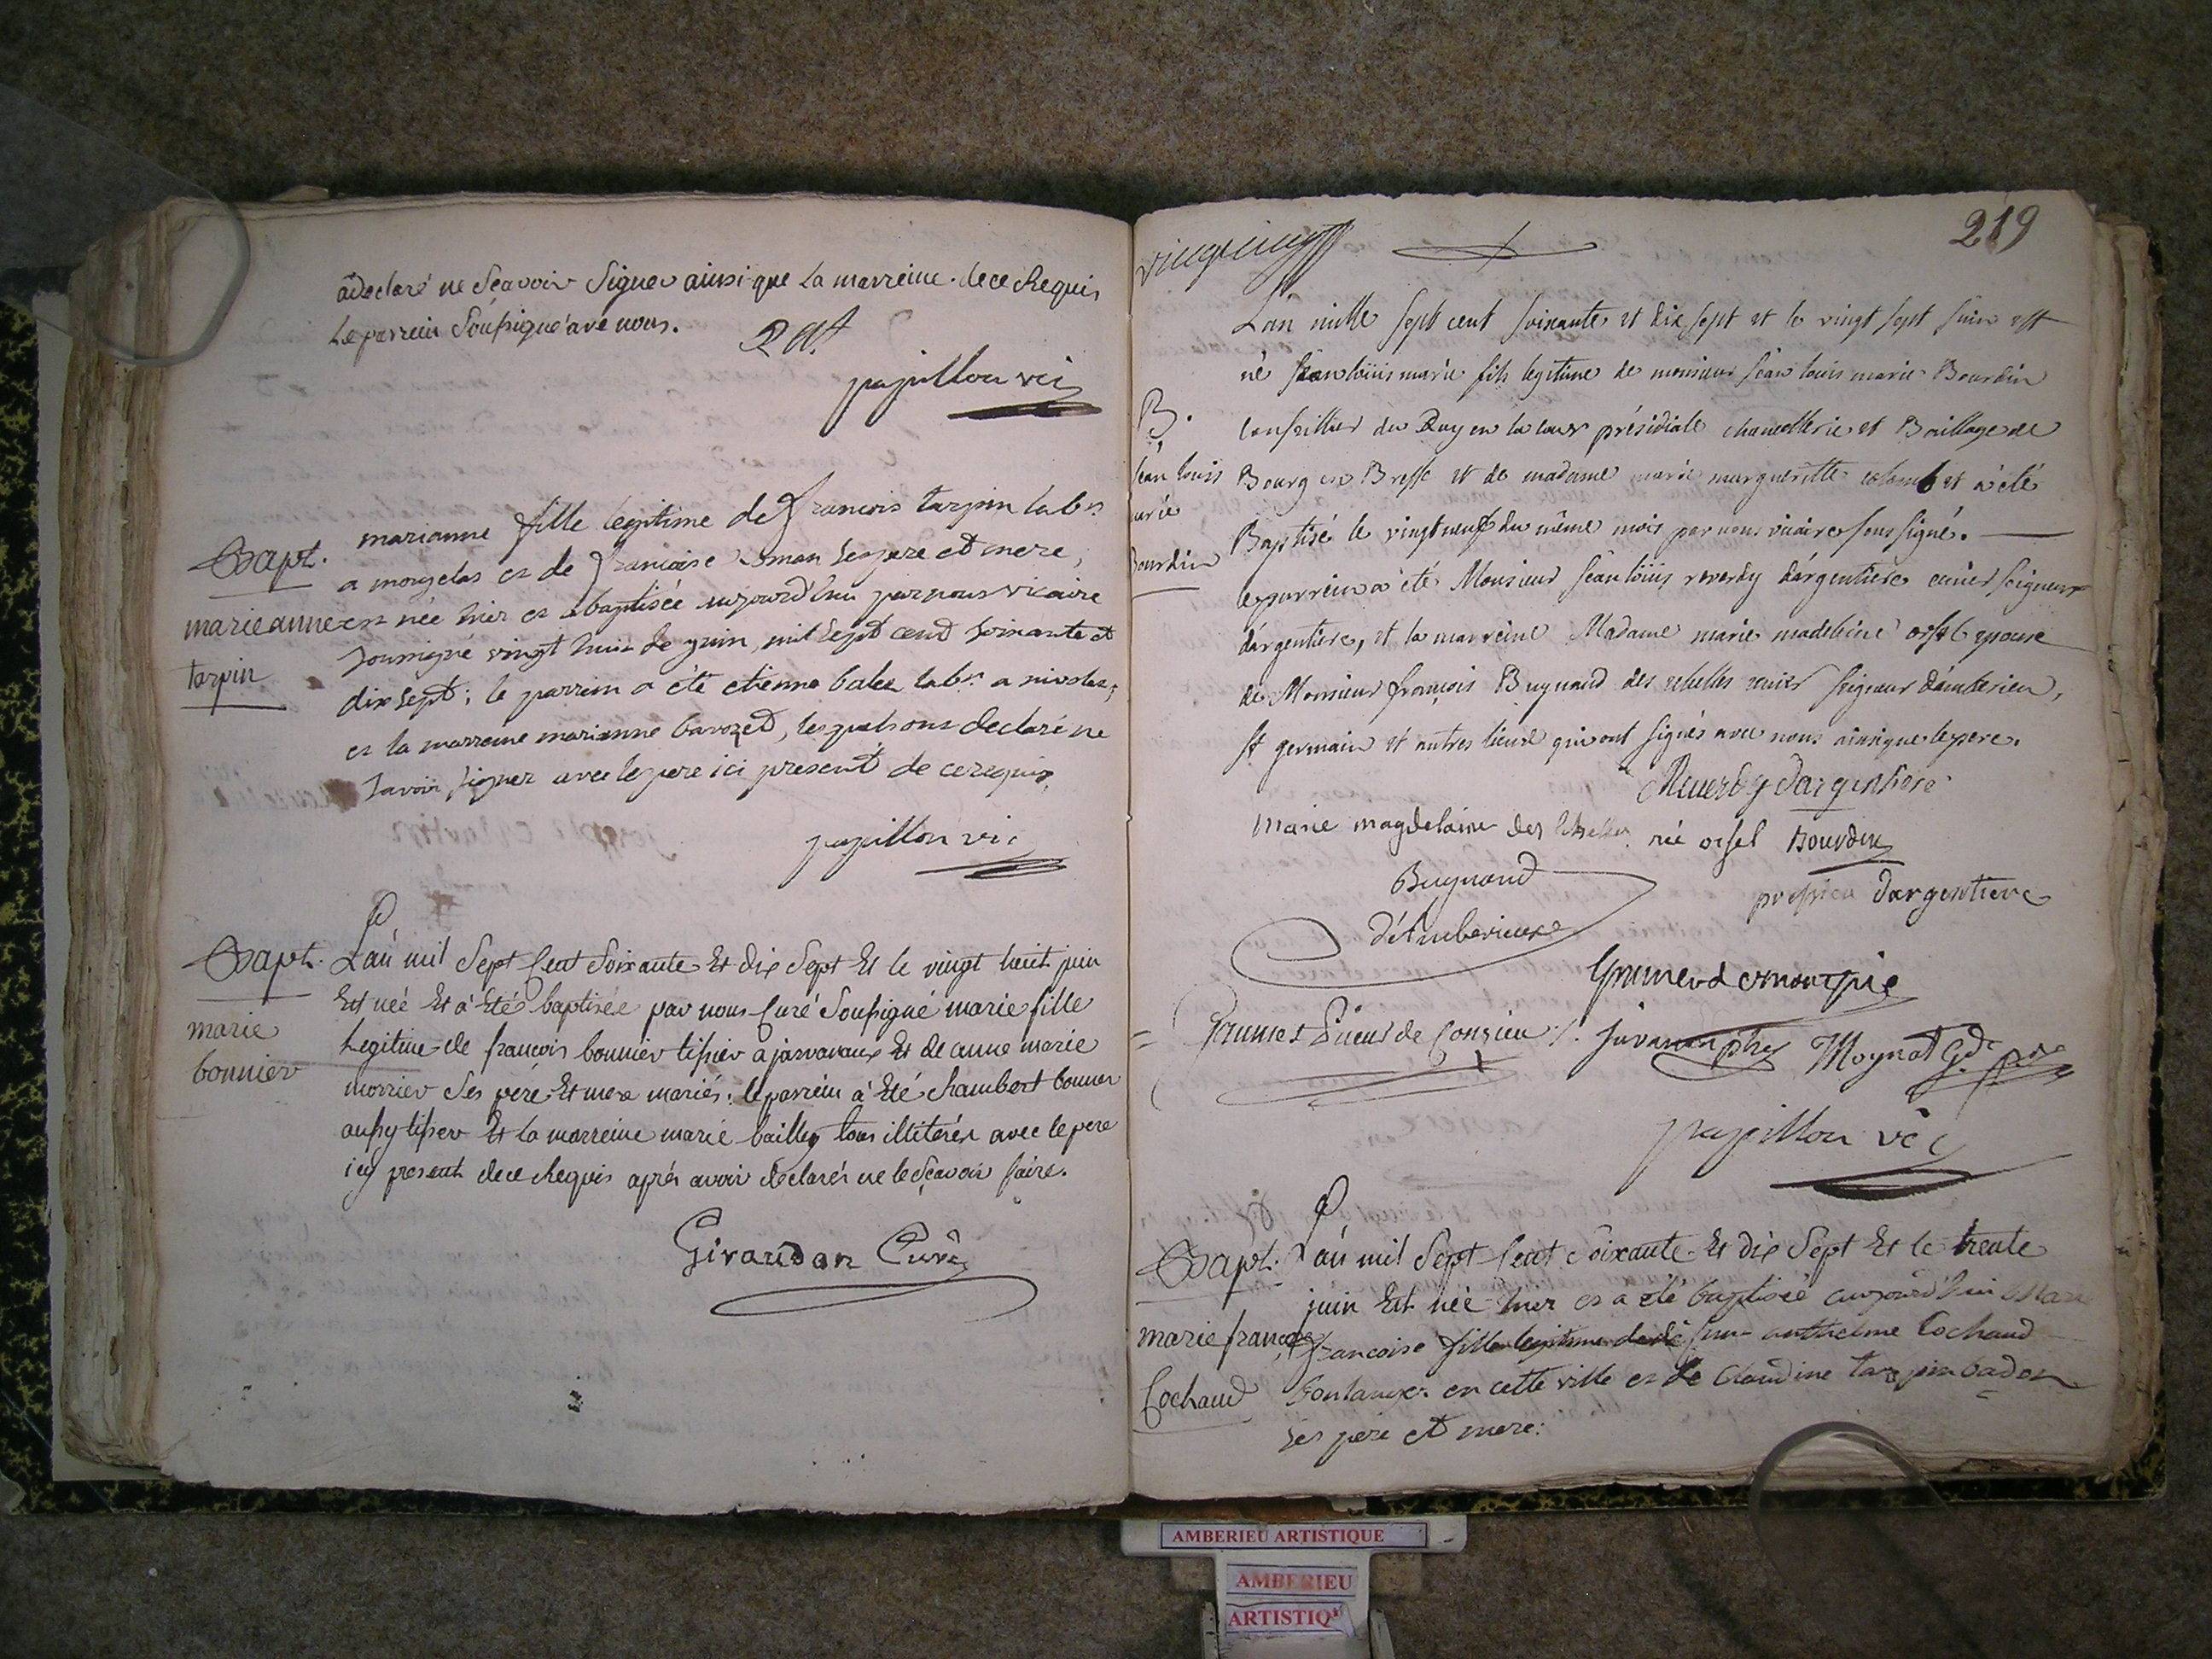 adeclaré ne Sçavoir Signer ainsi que La marreine. de ce Requis
Le parrein Soussigné avc nous.
papillon vic
Bapt.
marie anne
tarpin
marianne fille legitime de francois tarpin lab.r
a mongelas et de francoise roman ses pere et mere,
est née hier et a baptisée aujourd'hui par nous vicaire
soussigné vingt huit de juin, mil sept cent soixante et
dix sept; le parrein a été etienne balex lab.r a nivolas;
et la marreine marianne bavozed, lesquels ont declaré ne
savoir signer avec le pere ici present de ce requis,
papillon vic
Bapt.
marie
bonnier
L'an mil Sept Cent Soixante Et dix Sept Et le vingt huit juin
Est née Et à Eté baptisée par nous Curé Soussigné marie fille
Legitime de francois bonnier tissier a jarvavaux Et de anne marie
morrier Ses peré Et mere mariés; le parrein à Eté chambert bonnier
aussy tissier Et la marreine marie bailly tous illiterés avec le pere
icy present de ce Requis aprés avoir declarés ne le Sçavoir faire.
Giraudon Curé
219
B.
Jean Louis
marie
Bourdin
L'an mille sept cent soixante et dix sept et le vingt sept juin est
né Jean loüis marie fils legitime de monsieur jean louis marie Bourdin
Conseiller du Roy en la cour présidiale chancellerie et Baillage de
Bourg en Bresse et de madame marie margueritte colomb et a été
Baptisé le vingt neuf du même mois par nous vicaire soussigné.
le parrein a été Monsieur jean loüis reverdy d'argentiere ecuier seigneur
d'argentiere, et la marreine Madame marie madeleine orsel epouse
de Monsieur françois Buynand des echelles ecuier seigneur d'amberieu,
st germain et autres lieux qui ont signés avec nous ainsi que le pere.
Reverdy d'argentiere
marie magdelaine des Echelles née orsel Bourdin
Buynand
d'Amberieux
d'argentiere
papillon vic
Bapt.
marie françoise
Cochaud
L'an mil Sept Cent Soixante Et dix Sept Et le trente
juin Est née hier et a été baptisée aujourd'hui Marie
francoise fille legitime de anthelme Cochaud
boulanger en cette ville et de Claudine tarpin badon
ses pere et mere:
AMBERIEU ARTISTIQUE
AMBERIEU
ARTISTIQ